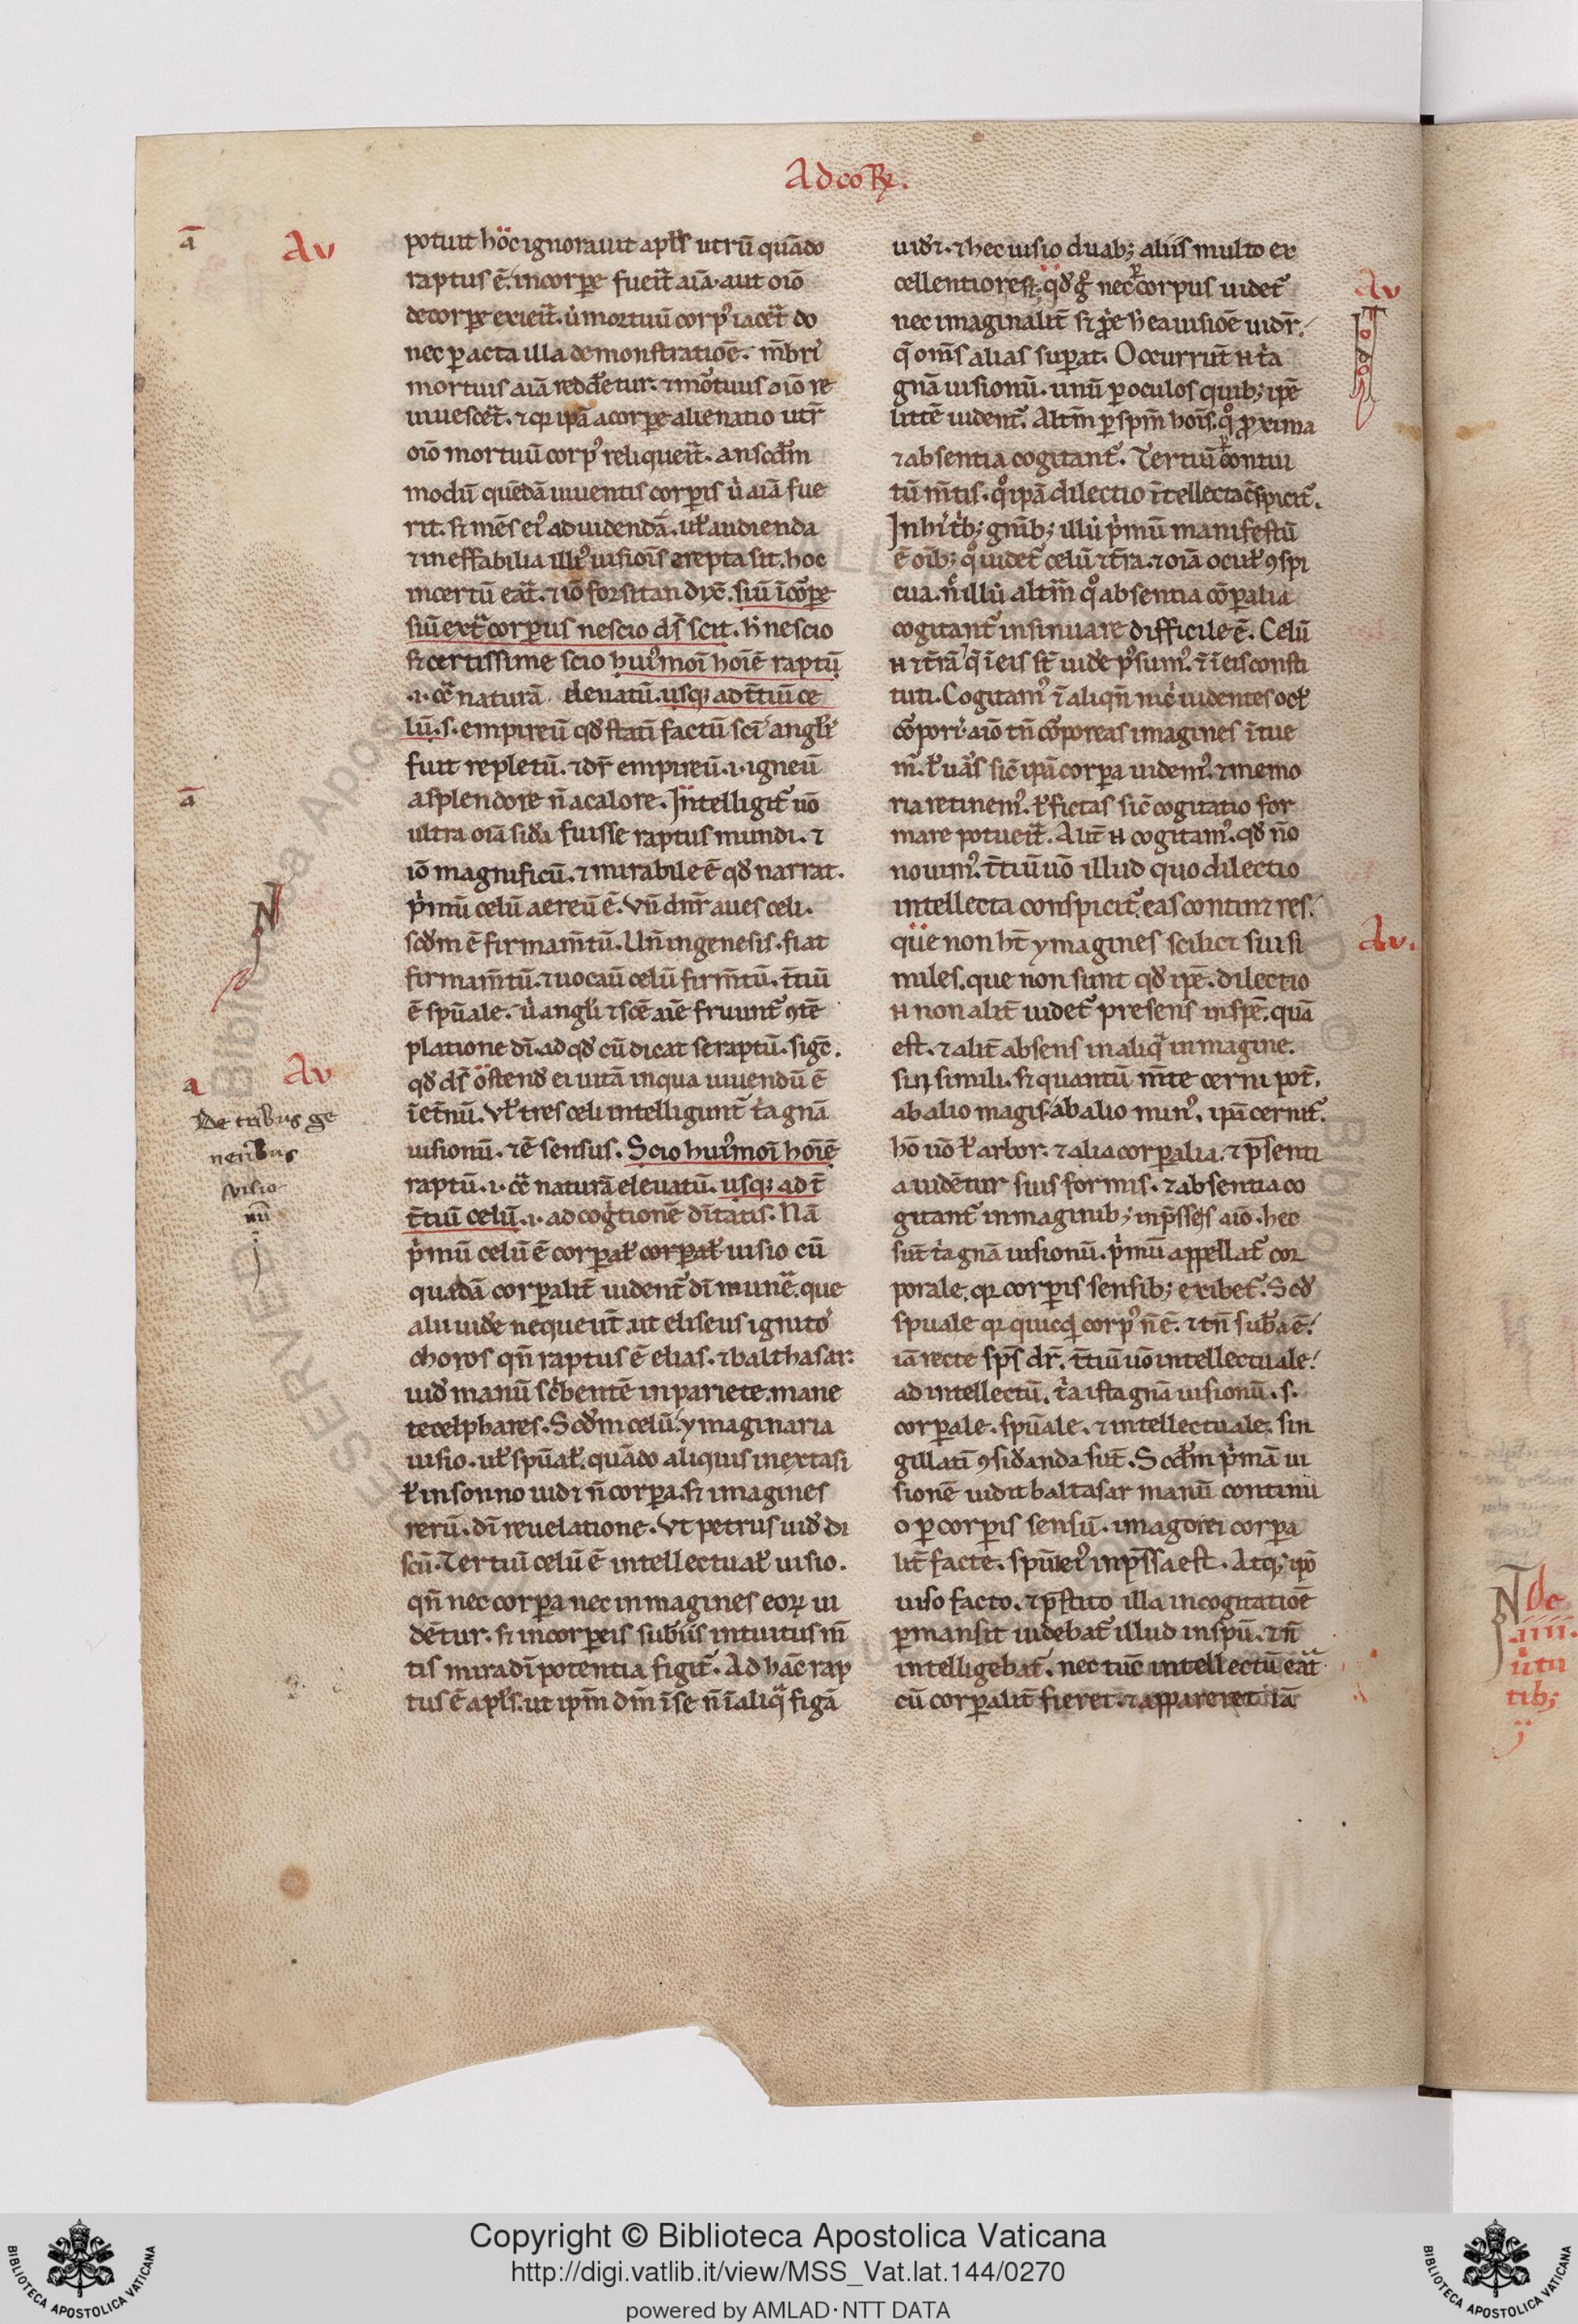 Ad coꝶ.
potuit hoc ignorauit apl̄s utrū quādo
raptus ē. in corpꝫe fueit̄ aīa. aut oīo
de corpe exieit̄. ut mortuū corpꝰ iacet̄ do
nec pacta illa demonstratiōe. mēbrı
mortuis aīa reddetur. ⁊ mortuus oīo re
uiuesceret̄. ⁊ qꝛ ipā a corpe alienatio utr̄
oīo mortuū corpꝰ reliqueit̄. an scđm
modū quēdā uiuentis corpis ibi aīa fue
rit. sꝫ mēs eiꝰ ad uidendā. ul̄ audienda
⁊ ineffabilia illiꝰ uisiōis arepta sit. hoc
incertū erat̄. ⁊ iō forsitan dix̄. siū ī corpe
siū ext̄ corpus nescio ds̄ scit. h̄ nescio
sꝫ certissime scio huiꝰmoī hoīē raptū
.i. cont̄ naturā eleuatū. usqꝫ ad t̄tiū ce
lū. s. empireū qđ statī factū scīs angl̄is
fuit repletū. ⁊ dr̄ empireū. i. igneū
a splendore n̄ a calore. Intelligit᷑ uō
ultra oīa sidera fuisse raptus mundi. ⁊
iō magnificū. ⁊ mirabile ē qđ narrat.
pͥmū celū aereū ē. Vn̄ dnr̄ aues celi.
scđm ē firmam̄tū. Un̄ in genesis. fiat
firmam̄tū. ⁊ uocauit celū firm̄tū. t̄tiū
ē spūale. ubi angl̄i ⁊ scē aīe fruunt᷑ ꝯtē
platione dī. ad qđ cū dicat se raptū. sigē.
qđ ds̄ ostenđ ei uitā in qua uiuendū ē
ī et̄nū. Vl̄ tres celi intelligunt᷑ tͥa gn̄a
uisionū. ⁊ ē sensus. Scio huiꝰmoī hoīē
raptū. i. cont̄ naturā eleuatū. usqꝫ ad t̄
t̄tiū celū. i. ad cognitionē dītatis. Nā
pͥmū celū ē corpal̄ corpal̄ uisio cū
quedā corpalit̄ uident᷑ dī mun̄e. que
alii uidere nequeūt. ut eliseus ignitoˢ
choros qn̄ raptus ē elias. ⁊ balthasar.
uiđ manū scͥbentē in pariete. mane
tecelphares. Scđm celū. ymaginaria
uisio. ul̄ spūal̄. quādo aliquis in extasi
ł in sonno uidꝫ n̄ corpa. sꝫ imagines
rerū. dī reuelatione. Vt petrus uiđ di
scū. Tertiū celū ē intellectual̄ uisio.
qn̄ nec corpa nec inmagines eoꝝ ui
dētur. sꝫ incorpeis subīis intuitus m̄
tis mira dī potentia figit᷑. Ad hāc rap
tus ē apl̄s. ut ipm̄ dm̄ ī se n̄ ī aliqͣ figā
ā
Av
ā
N
Av
a
De tribus ge
neribus
visio
nū
uiđꝫ. ⁊ hec uisio duabꝫ aliis multo ex
cellentior est. qđ ḡ nec corpus uidet᷑
nec imaginalit̄ sꝫ ꝓpͥe h̄ ea uisiōe uidr̄.
q̄ om̄s alias supat. Occurrūt n̄ tͥa
gn̄a uisionū. unū p oculos quibꝫ ipē
littē uident᷑. Altm̄ p spm̄ hoīs. qͦ ꝓxima
⁊ absentia cogitant᷑. Tertiū contui
tū m̄tis. qͦ ipā dilectio ītellecta cōspicit᷑.
In his tͥbꝫ gn̄ibꝫ illud pͥmū manifestū
ē oībꝫ qͦ uidet᷑ celū ⁊ t̄ra. ⁊ oīa ocul̄ ꝯspi
cua. n̄ illud altm̄ qͦ absentia corpalia
cogitant᷑ insinuare difficile ē. Celū
n̄ ⁊ t̄rā ⁊ q̄ ī eis st̄ uidere psumꝰ. ⁊ ī eis consti
tuti. Cogitamꝰ ⁊ aliqn̄ nichil uidentes ocl̄
corporis. aīo tn̄ corporeas imagines ītue
m̄. ł uās sic ipā corpa uidemꝰ. ⁊ memo
ria retinemꝰ. ł fictas sic cogitatio for
mare potueit̄. Alit̄ n̄ cogitamꝰ. qđ nō
nouimꝰ. t̄tiū uō illud quo dilectio
intellecta conspicit᷑. eas continꝫ res.
que non hn̄t ymagines scilicꝫ sui si
miles. que non sunt qđ ipē. dilectio
n̄ non alit̄ uidet᷑ presens in spē. quā
est. ⁊ alit̄ absens in aliqͣ inmagine.
sui simili. sꝫ quantū m̄te cerni pot̄.
ab alio magis. ab alio minꝰ. ipā cernit᷑.
hō uō ł arbor. ⁊ alia corpalia. ⁊ p̄senti
a uidētur suis formis. ⁊ absentia co
gitant᷑ inmaginibꝫ inp̄ssis aīo. hec
sūt tͥa gn̄a uisionū. pͥmū appellat᷑ cor
porale. qꝛ corpis sensibꝫ exibet᷑. Scđ
spūale qꝛ quicqͥd corpꝰ n̄ ē. ⁊ tn̄ sub̄a ē.
iā recte sps̄ dr̄. t̄tiū uō intellectuale.
ad intellectū. tͥa ista gn̄a uisionū. s.
corpale. spūale. ⁊ intellectuale. sin
gillatī ꝯsiđanda sūt. Scđm pͥmā ui
sionē uidit baltasar manū continu
o p corpis sensū. imago rei corpa
lit̄ facte. spūi eiꝰ inp̄ssa est. Atqꝫ ipō
uiso facto. ⁊ p̄tito illa in cogitatiōe
pmansit uidebat᷑ illud in spū. ⁊ n̄
intelligebat᷑. nec tūc intellectū erat̄
cū corpalit̄ fieret. ⁊ appareret. iā
Av
Av.
N de
.iiii.
utu
tibꝫ
Copyright © Biblioteca Apostolica Vaticana
http://digi.vatlib.it/view/MSS_Vat.lat.144/0270
powered by AMLAD·NTT DATA
BIBLIOTECA APOSTOLICA VATICANA
BIBLIOTECA APOSTOLICA VATICANA